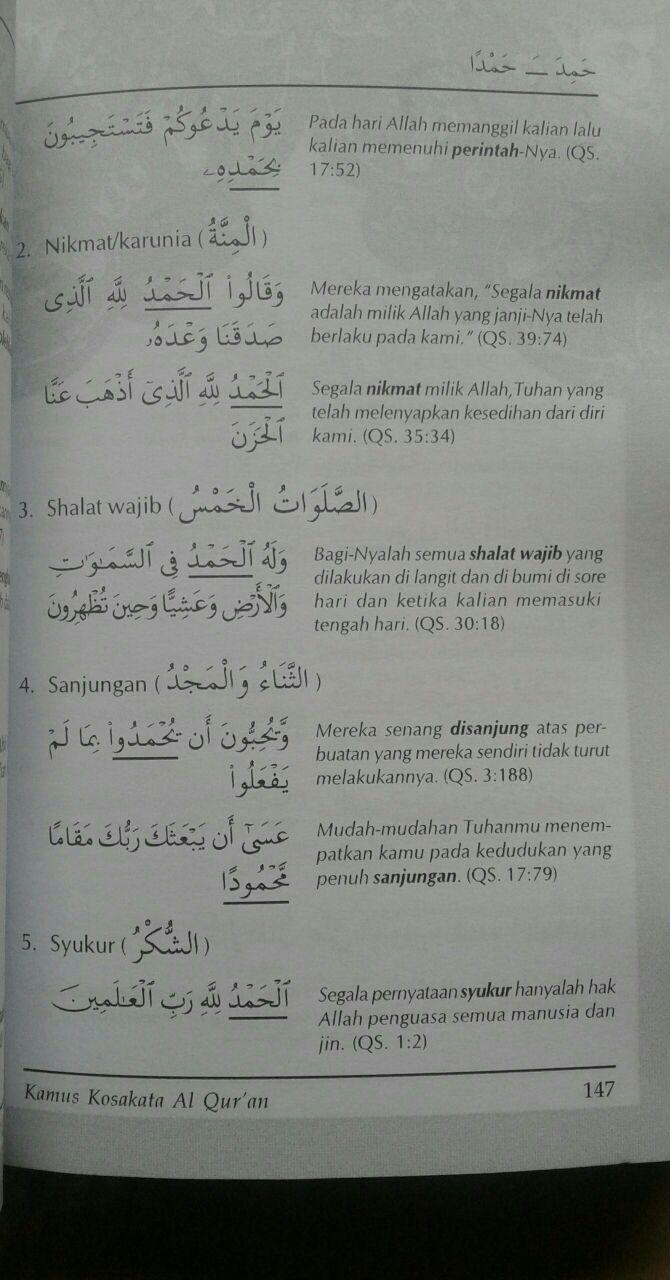 حَمِدَ — حَمْدًا
يَوْمَ يَدْعُوكُمْ فَتَسْتَجِيبُونَ
بِحَمْدِهِۦ
Pada hari Allah memanggil kalian lalu
kalian memenuhi perintah-Nya. (QS.
17:52)
2. Nikmat/karunia (الْمِنَّةُ)
وَقَالُوا۟ ٱلْحَمْدُ لِلَّهِ ٱلَّذِى
صَدَقَنَا وَعْدَهُۥ
Mereka mengatakan, “Segala nikmat
adalah milik Allah yang janji-Nya telah
berlaku pada kami.” (QS. 39:74)
ٱلْحَمْدُ لِلَّهِ ٱلَّذِىٓ أَذْهَبَ عَنَّا
ٱلْحَزَنَ
Segala nikmat milik Allah,Tuhan yang
telah melenyapkan kesedihan dari diri
kami. (QS. 35:34)
3. Shalat wajib (الصَّلَوَاتُ الْخَمْسُ)
وَلَهُ ٱلْحَمْدُ فِى ٱلسَّمَـٰوَٰتِ
وَٱلْأَرْضِ وَعَشِيًّا وَحِينَ تُظْهِرُونَ
Bagi-Nyalah semua shalat wajib yang
dilakukan di langit dan di bumi di sore
hari dan ketika kalian memasuki
tengah hari. (QS. 30:18)
4. Sanjungan (الثَّنَاءُ وَالْمَجْدُ)
وَّيُحِبُّونَ أَن يُحْمَدُوا۟ بِمَا لَمْ
يَفْعَلُوا۟
Mereka senang disanjung atas per-
buatan yang mereka sendiri tidak turut
melakukannya. (QS. 3:188)
عَسَىٰٓ أَن يَبْعَثَكَ رَبُّكَ مَقَامًا
مَّحْمُودًا
Mudah-mudahan Tuhanmu menem-
patkan kamu pada kedudukan yang
penuh sanjungan. (QS. 17:79)
5. Syukur (الشُّكْرُ)
ٱلْحَمْدُ لِلَّهِ رَبِّ ٱلْعَـٰلَمِينَ
Segala pernyataan syukur hanyalah hak
Allah penguasa semua manusia dan
jin. (QS. 1:2)
Kamus Kosakata Al Qur'an
147